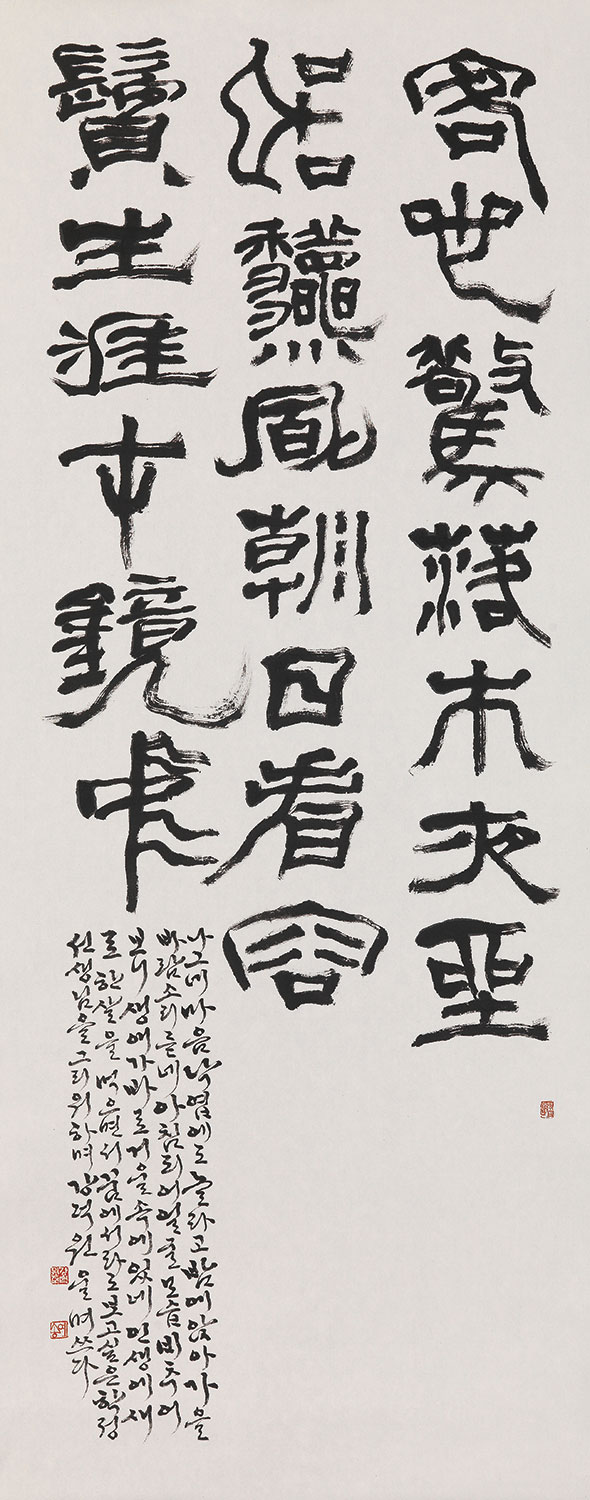 客心驚落木夜坐
聽秋風朝日看容
鬢生涯在鏡中
나그네 마음 낙엽에도 놀라고 밤에 앉아 가을
바람소리 듣네 아침되어 얼굴 모습 비추어
보니 생애가 바로 거울 속에 있네 인생에 새
로 한 살을 먹으면서 꿈에서라도 보고 싶은 학정
선생님을 그리워하며 강덕원 울며 쓰다